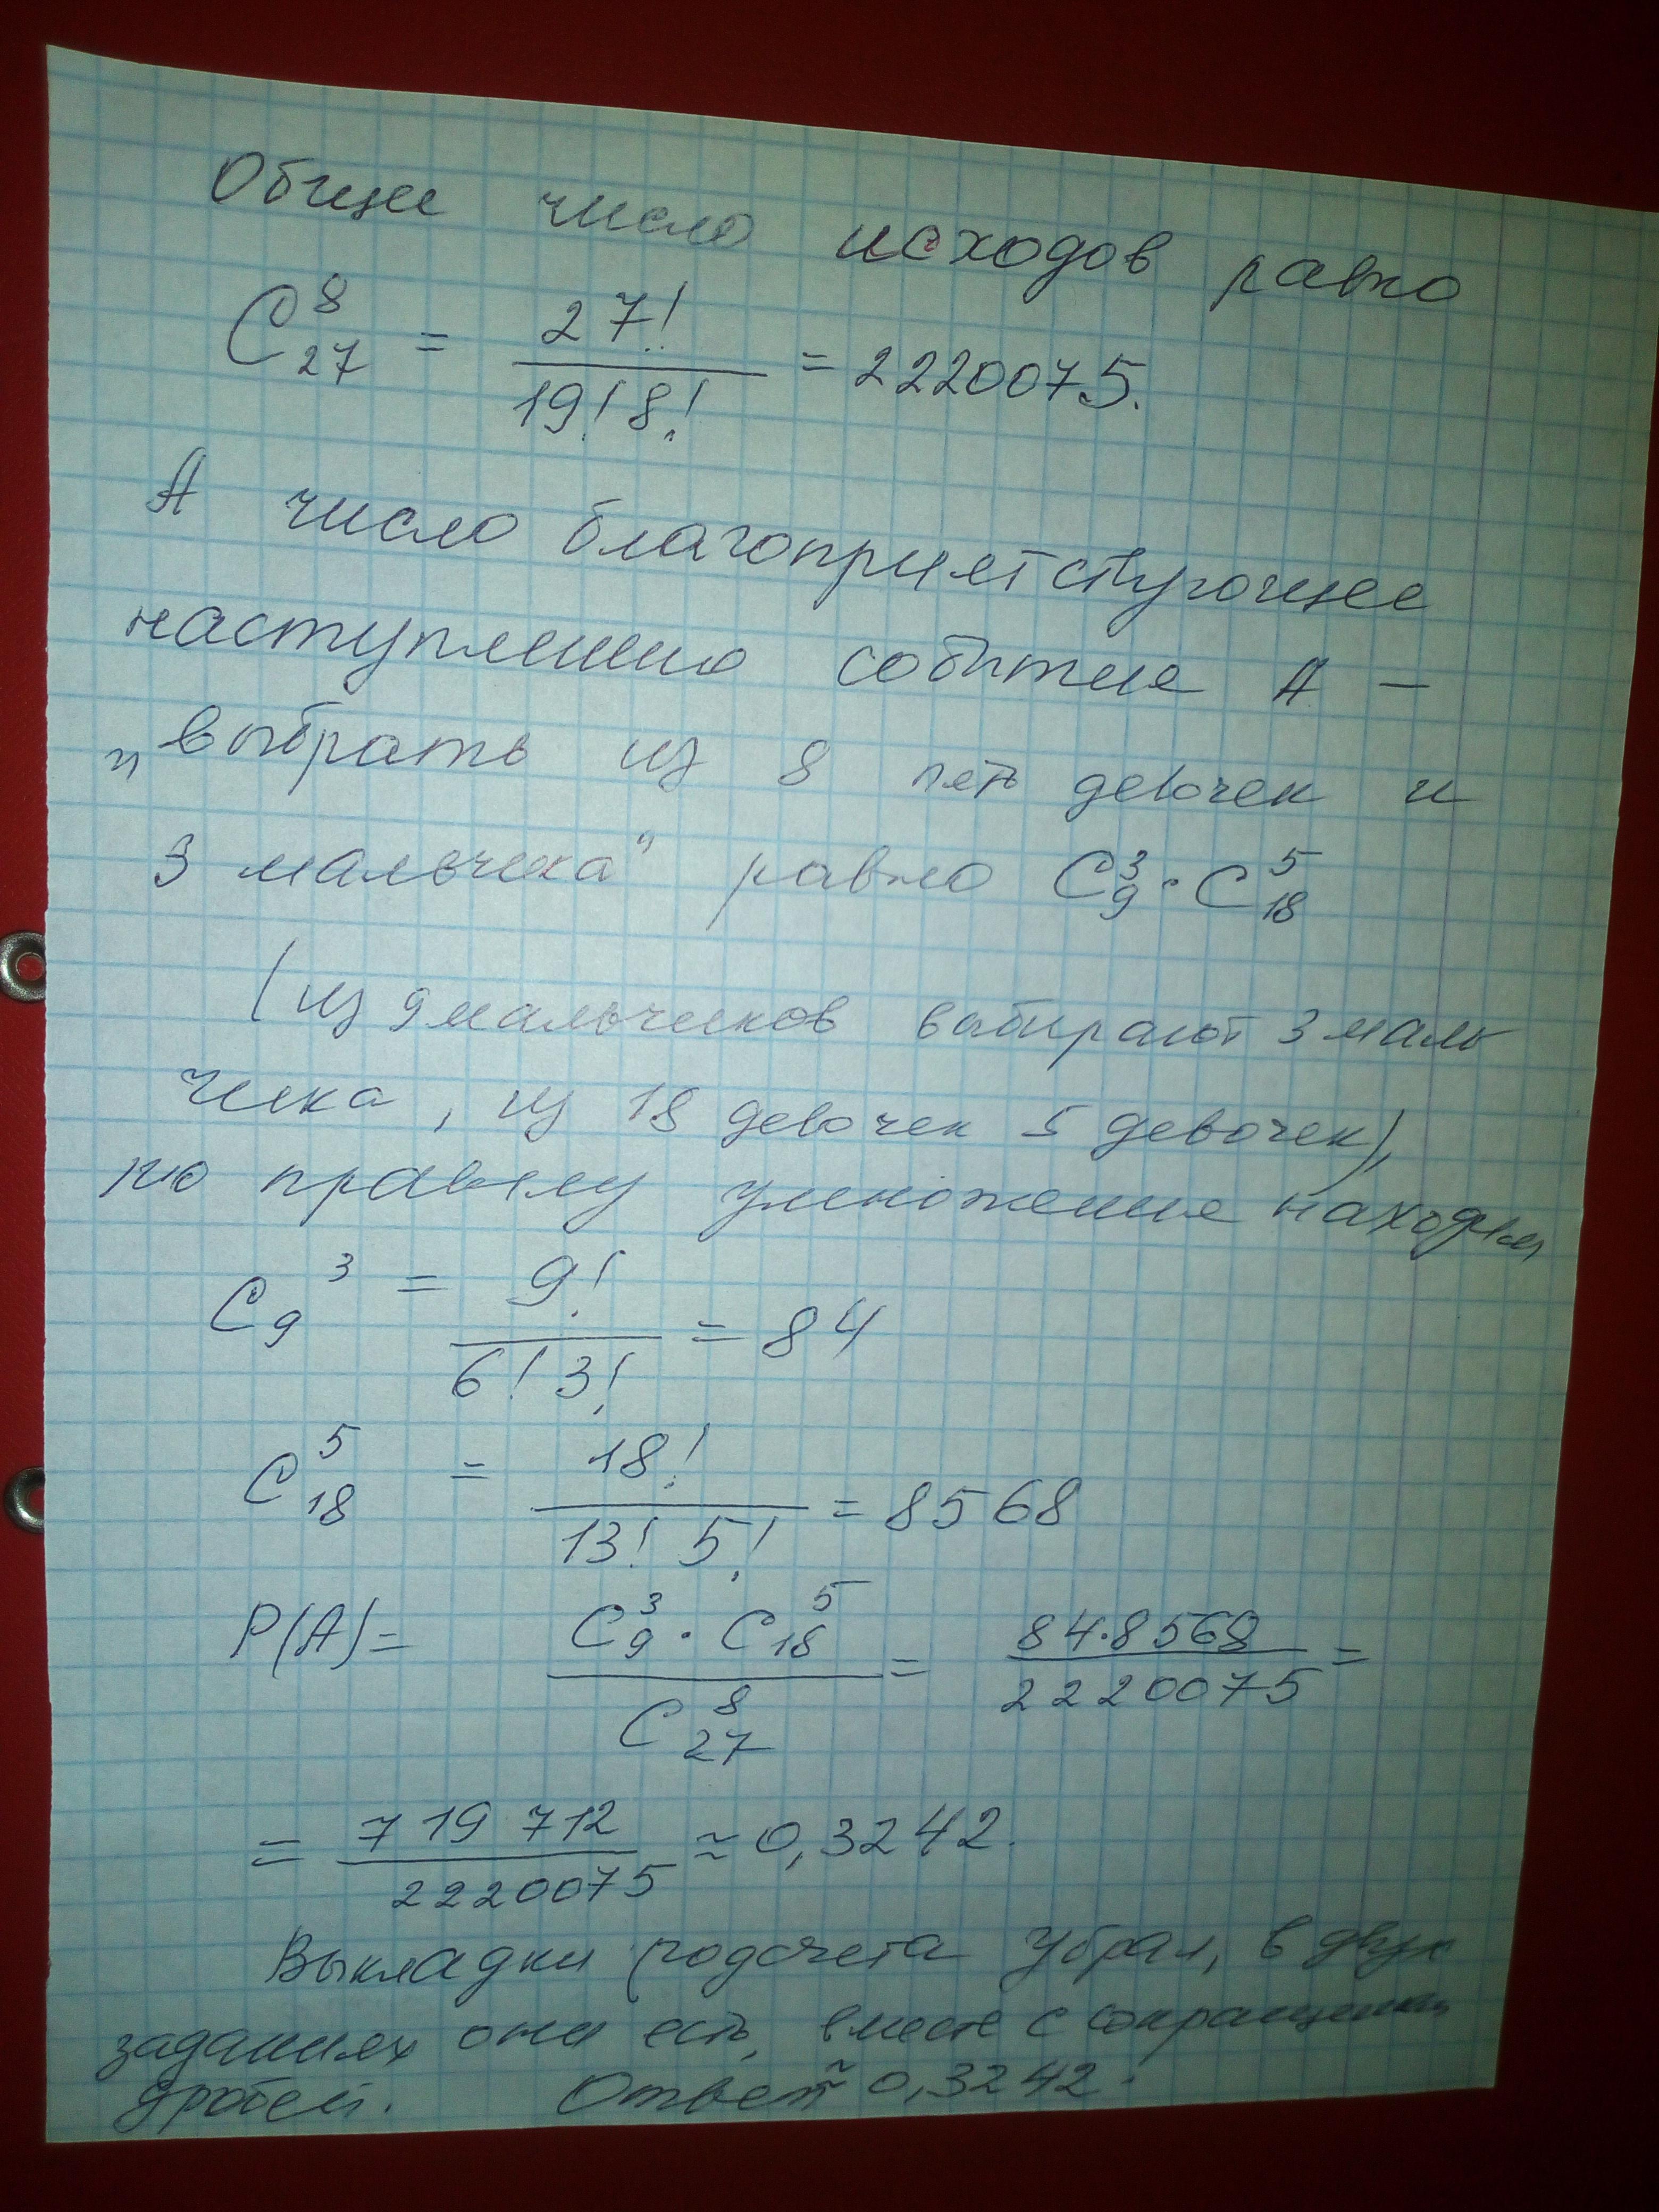 Общее число исходов равно
C₂₇⁸ = 27! / 19! 8! = 2220075.
А число благоприятствующее
наступлению события А –
„выбрать из 8 пять девочек и
3 мальчика" равно C₉³ · C₁₈⁵
(из 9 мальчиков выбирают 3 маль
чика, из 18 девочек 5 девочек),
по правилу умножения находим
C₉³ = 9! / 6! 3! = 84
C₁₈⁵ = 18! / 13! 5! = 8568
P(A) = C₉³ · C₁₈⁵ / C₂₇⁸ = 84·8568 / 2220075 =
= 719 712 / 2220075 ≈ 0,3242.
Выкладки подсчета убрал, в двух
заданиях они есть, вместе с сокращением
дробей. Ответ ≈ 0,3242.